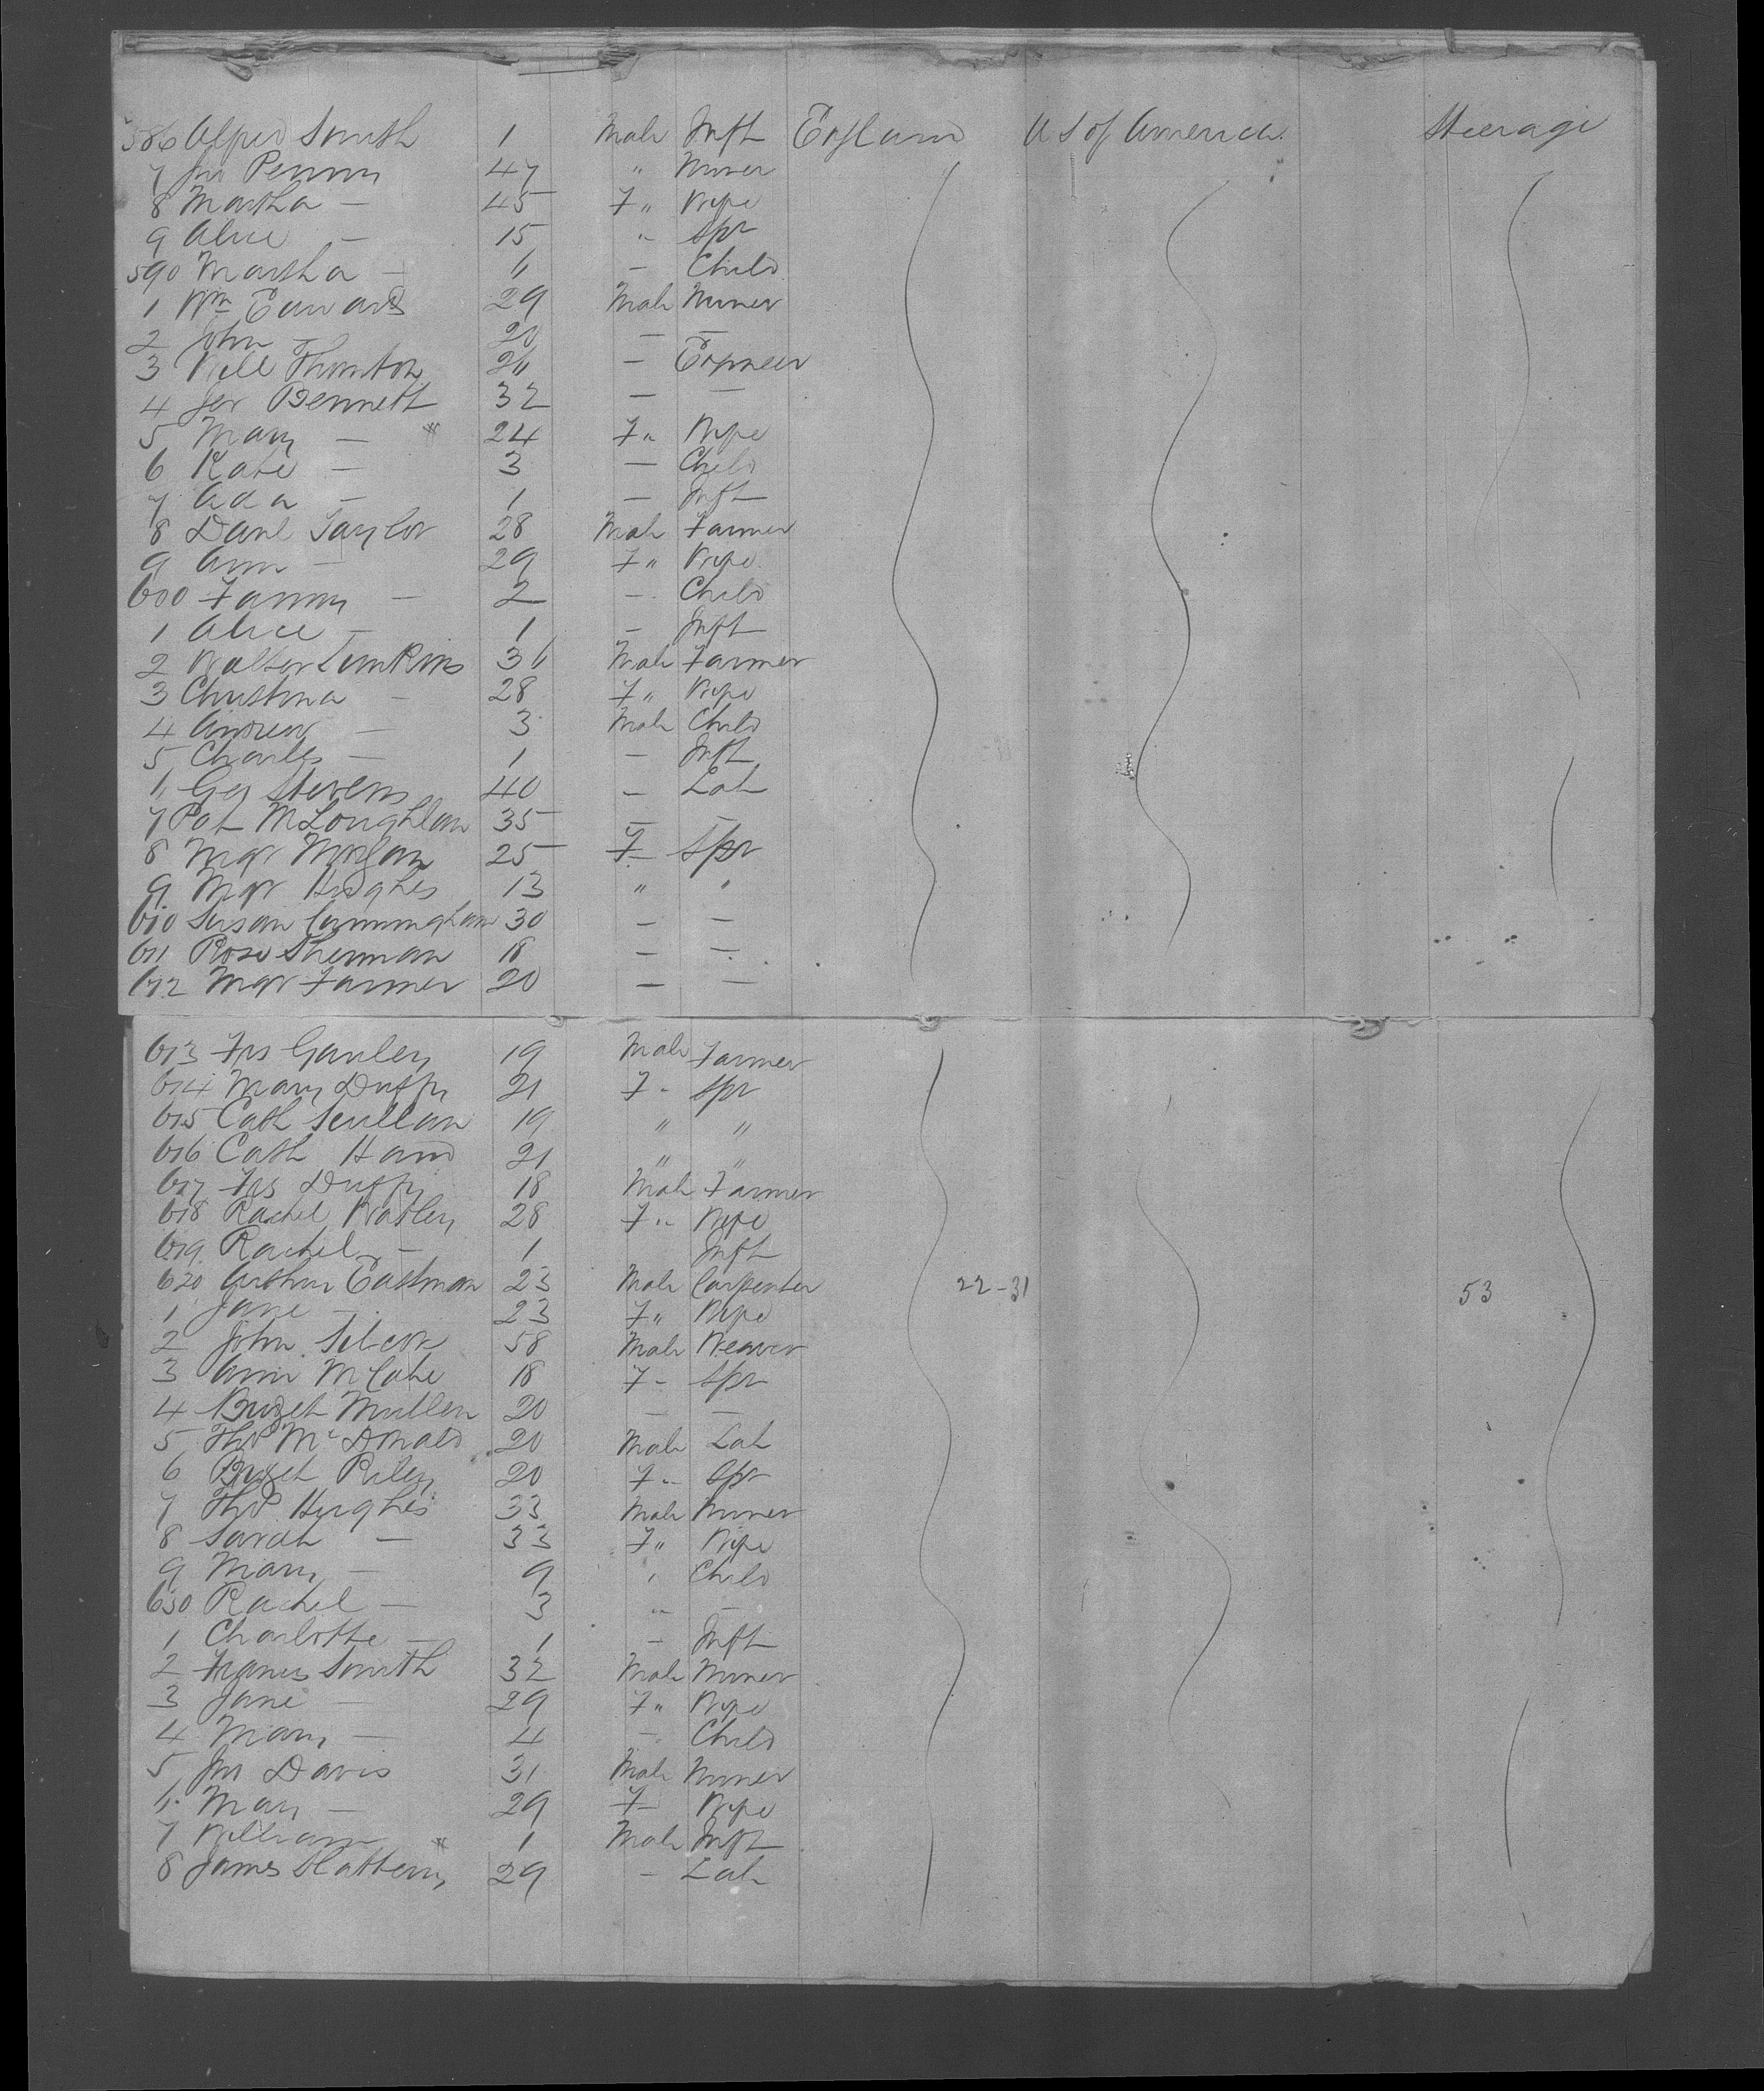 586 Alfred Smith 1 Male Inft England U S of America Steerage
7 Jno Penny 47 " Miner
8 Martha — 45 F " Wife
9 Alice — 15 " Spr
590 Martha — 6 — Child
1 Wm Edwards 29 Male Miner
2 John — 20 — —
3 Will Thornton 26 — Engineer
4 Jer Bennett 32 — —
5 Mary — 24 F " Wife
6 Kate — 3 — Child
7 Ada — 1 — Inft
8 Danl Taylor 28 Male Farmer
9 Ann — 29 F " Wife
600 Fanny — 2 — Child
1 Alice — 1 — Inft
2 Walter 36 Male Farmer
3 Christina — 28 F " Wife
4 Andrew — 3 Male Child
5 Charles — 1 — Inft
6 Geo Stevens 40 — Lab
7 Pat McLoughlan 35 — —
8 Mgr Morgan 25 F — Spr
9 Mgr Hughes 13 " "
610 Susan Cunningham 30 — —
611 Rose Sherman 18 — —
612 Mgr Farmer 20 — —
613 Frs Ganley 19 Male Farmer
614 Mary Duffy 21 F - Spr
615 Cath Scullan 19 " "
616 Cath Hand 21 " "
617 Frs Duffy 18 Male Farmer
618 Rachel 28 F " Wife
619 Rachel — 1 Inft
620 Arthur Eastman 23 Male Carpenter 22-31 53
1 Jane — 23 F " Wife
2 John Silcox 58 Male Weaver
3 Ann McCabe 18 F - Spr
4 Bridget Mullen 20 — —
5 Thos McDonald 20 Male Lab
6 Bridget Riley 20 F " Spr
7 Thos Hughes 33 Male Miner
8 Sarah — 33 F " Wife
9 Mary — 9 " Child
630 Rachel — 3 " —
1 Charlotte — 1 — Inft
2 Francis Smith 32 Male Miner
3 Jane — 29 F " Wife
4 Mary — 4 — Child
5 Jno Davis 31 Male Miner
6 Mary — 29 F — Wife
7 William 1 Male Inft
8 James Slattery 29 — Lab